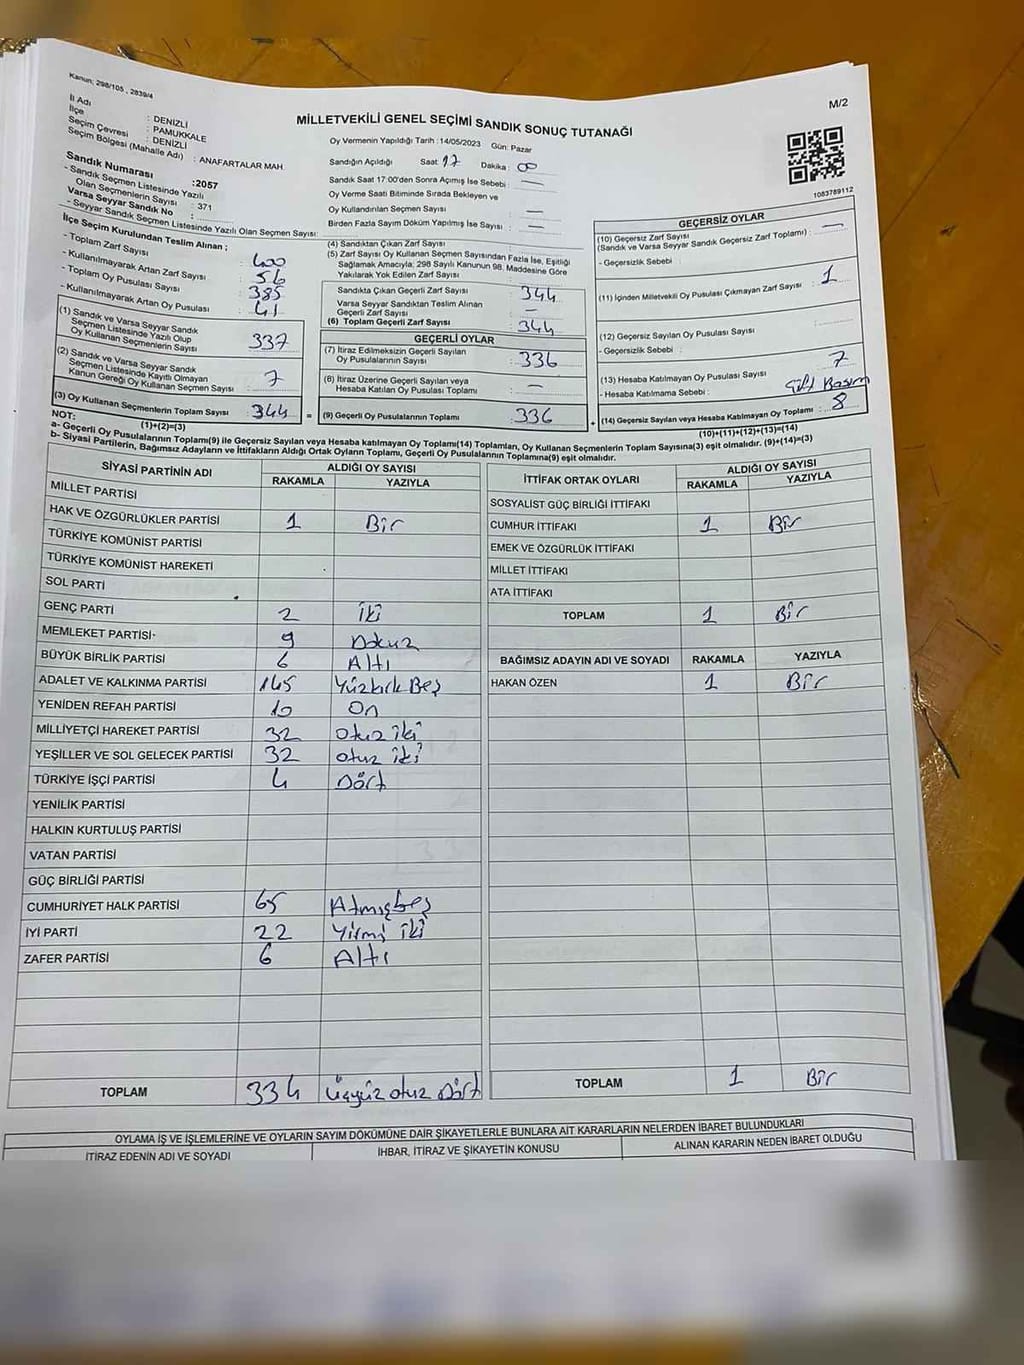 Kanun: 298/105 , 2839/4
M/2
İl Adı : DENİZLİ
İlçe : PAMUKKALE
Seçim Çevresi : DENİZLİ
Seçim Bölgesi (Mahalle Adı) : ANAFARTALAR MAH.
Sandık Numarası :2057
- Sandık Seçmen Listesinde Yazılı
Olan Seçmenlerin Sayısı : 371
Varsa Seyyar Sandık No :
- Seyyar Sandık Seçmen Listesinde Yazılı Olan Seçmen Sayısı:
MİLLETVEKİLİ GENEL SEÇİMİ SANDIK SONUÇ TUTANAĞI
Oy Vermenin Yapıldığı Tarih :14/05/2023 Gün: Pazar
Sandığın Açıldığı Saat :17 Dakika : 00
Sandık Saat 17:00'den Sonra Açımış İse Sebebi : —
Oy Verme Saati Bitiminde Sırada Bekleyen ve
Oy Kullandırılan Seçmen Sayısı : —
Birden Fazla Sayım Döküm Yapılmış İse Sayısı : —
1083789112
İlçe Seçim Kurulundan Teslim Alınan ;
- Toplam Zarf Sayısı : 400
- Kullanılmayarak Artan Zarf Sayısı : 56
- Toplam Oy Pusulası Sayısı : 385
- Kullanılmayarak Artan Oy Pusulası : 41
(1) Sandık ve Varsa Seyyar Sandık
Seçmen Listesinde Yazılı Olup
Oy Kullanan Seçmenlerin Sayısı : 337
(2) Sandık ve Varsa Seyyar Sandık
Seçmen Listesinde Kayıtlı Olmayan
Kanun Gereği Oy Kullanan Seçmen Sayısı : 7
(3) Oy Kullanan Seçmenlerin Toplam Sayısı : 344
(1)+(2)=(3)
(4) Sandıktan Çıkan Zarf Sayısı :
(5) Zarf Sayısı Oy Kullanan Seçmen Sayısından Fazla İse, Eşitliği
Sağlamak Amacıyla; 298 Sayılı Kanunun 98. Maddesine Göre
Yakılarak Yok Edilen Zarf Sayısı :
Sandıkta Çıkan Geçerli Zarf Sayısı : 344
Varsa Seyyar Sandıktan Teslim Alınan
Geçerli Zarf Sayısı : —
(6) Toplam Geçerli Zarf Sayısı : 344
GEÇERLİ OYLAR
(7) İtiraz Edilmeksizin Geçerli Sayılan
Oy Pusulalarının Sayısı : 336
(8) İtiraz Üzerine Geçerli Sayılan veya
Hesaba Katılan Oy Pusulası Toplamı : —
= (9) Geçerli Oy Pusulalarının Toplamı : 336
GEÇERSİZ OYLAR
(10) Geçersiz Zarf Sayısı
(Sandık ve Varsa Seyyar Sandık Geçersiz Zarf Toplamı) : —
- Geçersizlik Sebebi :
(11) İçinden Milletvekili Oy Pusulası Çıkmayan Zarf Sayısı : 1
(12) Geçersiz Sayılan Oy Pusulası Sayısı :
- Geçersizlik Sebebi :
(13) Hesaba Katılmayan Oy Pusulası Sayısı : 7
- Hesaba Katılmama Sebebi : Çift Basım
+ (14) Geçersiz Sayılan veya Hesaba Katılmayan Oy Toplamı : 8
(10)+(11)+(12)+(13)=(14)
NOT:
a- Geçerli Oy Pusulalarının Toplamı(9) ile Geçersiz Sayılan veya Hesaba katılmayan Oy Toplamı(14) Toplamları, Oy Kullanan Seçmenlerin Toplam Sayısına(3) eşit olmalıdır. (9)+(14)=(3)
b- Siyasi Partilerin, Bağımsız Adayların ve İttifakların Aldığı Ortak Oyların Toplamı, Geçerli Oy Pusulalarının Toplamına(9) eşit olmalıdır.
SİYASİ PARTİNİN ADI ALDIĞI OY SAYISI
RAKAMLA YAZIYLA
MİLLET PARTİSİ
HAK VE ÖZGÜRLÜKLER PARTİSİ 1 Bir
TÜRKİYE KOMÜNİST PARTİSİ
TÜRKİYE KOMÜNİST HAREKETİ
SOL PARTİ
GENÇ PARTİ 2 iki
MEMLEKET PARTİSİ 9 Dokuz
BÜYÜK BİRLİK PARTİSİ 6 Altı
ADALET VE KALKINMA PARTİSİ 145 Yüzkırk Beş
YENİDEN REFAH PARTİSİ 10 On
MİLLİYETÇİ HAREKET PARTİSİ 32 otuz iki
YEŞİLLER VE SOL GELECEK PARTİSİ 32 otuz iki
TÜRKİYE İŞÇİ PARTİSİ 4 Dört
YENİLİK PARTİSİ
HALKIN KURTULUŞ PARTİSİ
VATAN PARTİSİ
GÜÇ BİRLİĞİ PARTİSİ
CUMHURİYET HALK PARTİSİ 65 Atmışbeş
İYİ PARTİ 22 Yirmi iki
ZAFER PARTİSİ 6 Altı
TOPLAM 334 Üçyüz otuz Dört
İTTİFAK ORTAK OYLARI ALDIĞI OY SAYISI
RAKAMLA YAZIYLA
SOSYALİST GÜÇ BİRLİĞİ İTTİFAKI
CUMHUR İTTİFAKI 1 Bir
EMEK VE ÖZGÜRLÜK İTTİFAKI
MİLLET İTTİFAKI
ATA İTTİFAKI
TOPLAM 1 Bir
BAĞIMSIZ ADAYIN ADI VE SOYADI RAKAMLA YAZIYLA
HAKAN ÖZEN 1 Bir
TOPLAM 1 Bir
OYLAMA İŞ VE İŞLEMLERİNE VE OYLARIN SAYIM DÖKÜMÜNE DAİR ŞİKAYETLERLE BUNLARA AİT KARARLARIN NELERDEN İBARET BULUNDUKLARI
İTİRAZ EDENİN ADI VE SOYADI İHBAR, İTİRAZ VE ŞİKAYETİN KONUSU ALINAN KARARIN NEDEN İBARET OLDUĞU